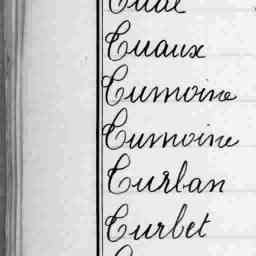 Cuaux
Cumoine
Cumoine
Curlan
Curbet